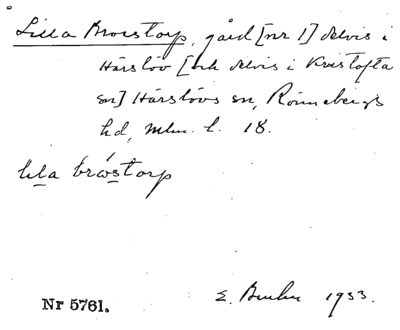 Lilla Broestorp, gård [nr 1] delvis i
Härslöv [och delvis i Kvistofta
sn] Härslövs sn, Rönnebergs
hd, Mlm. l. 18.
lila bröstorp
Nr 5761.
E. 1933.